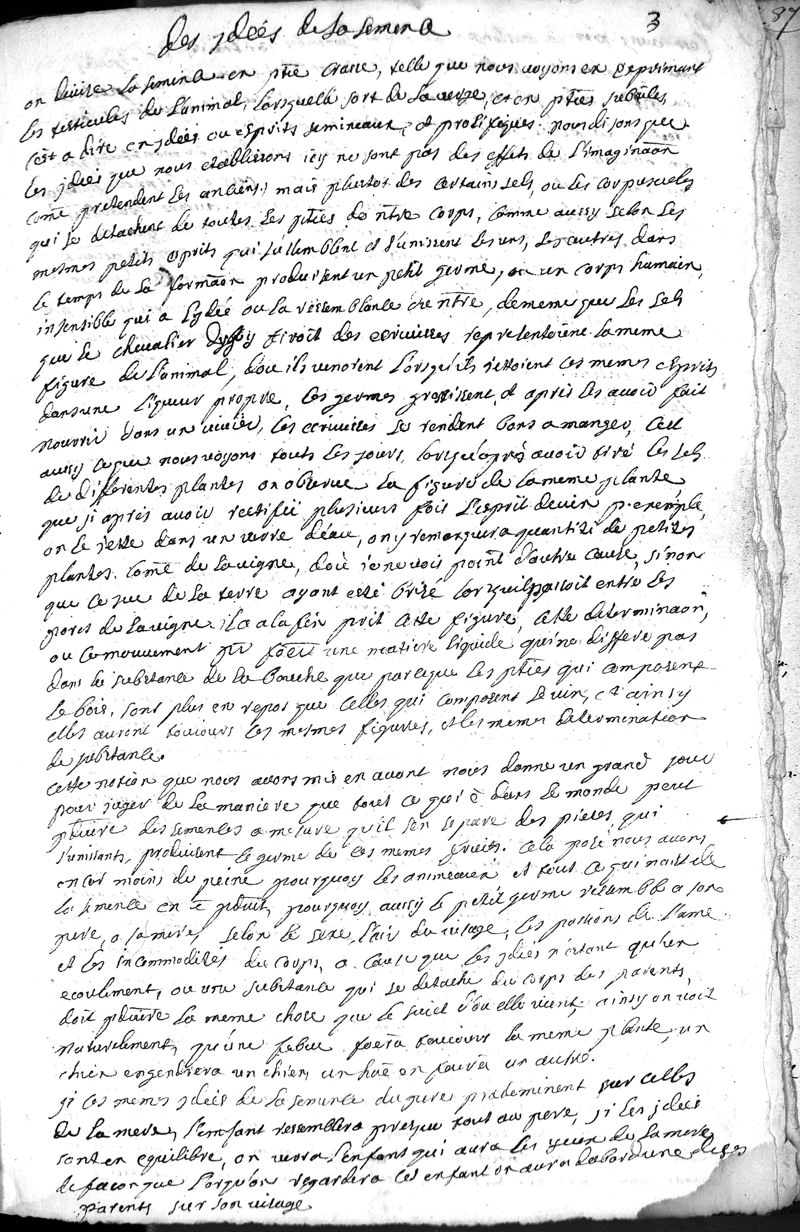 des jdeés de la semence 3 87
on divise la semence en ptie crasse, telle que nous voyons en exprimant
les testicules de l'animal, lorsquelle sort de la verge, et en pties subtiles
c'est a dire en jdeés ou esprits semineaux, et prolifiques. nous disons que
les jdeés que nous etablissons icy ne sont pas des effets de l'imaginaôn
come pretendent les anciens; mais plustot des certains sels, ou des corpuscules
qui se detachent de toutes les pties de ntre corps, comme aussy selon les
mesmes petits esprits qui s'assemblent et s'unissent les uns, les autres dans
le temps de la formaôn produisent un petit germe, ou un corps humain,
insensible qui a l'jdée ou la ressemblance de ntre, de meme que les sels
que le chevalier Digby tiroit des ecrevisses representoient la meme
figure de l'animal, d'ou ils venoient lorsqu'ils jettoient ces memes esprits
dans une liqueur propre, ces germes grossissent, et apres les avoir fait
nourrir dans un vivier, les ecrevisses se rendent bons a manger, C'est
aussy ce que nous voyons touts les jours, lorsqu'apres avoir tiré les sels
de differentes plantes on observe la figure de la meme plante
que si apres avoir rectifié plusieurs fois l'esprit de vin p. exemple,
on le jette dans un verre d'eau, on y remarquera quantité de petites
plantes come de la vigne, d'où je ne vois point d'autre cause, sinon
que ce suc de la terre ayant eté brisé lorsqu'il passoit entre les
pores de la vigne il a a la fin prit cette figure, cette determinaôn,
ou ce mouvement une matiere liquide qui ne differe pas
dans la substance de la souche que parceque les pties qui composent
le bois, sont plus en repos que celles qui composent le vin, et ainsy
elles auront toujours les mesmes figures, et les memes determination
de substance.
Cette notion que nous avons mis en avant nous donne un grand jour
pour juger de la maniere que tout ce qui e dans le monde peut
pduire des semences a mesure qu'il s'en separe des pieces qui
s'unissants, produisent le germe de ces memes Cela posé nous avons
encor moins de peine pourquoy les animeaux et tout ce qui nait de
la semence en e pduit, pourquoy aussy le petit germe ressemble a son
pere, a sa mere, selon le sexe, l'air du visage, les passions de l'ame
et les incommodités du corps, a cause que les jdeés n'etant qu'un
ecoulement, ou une substance qui se detache du corps des parents,
doit pduire la meme chose que le suiet d'ou elle vient; ainsy on voit
naturelment, qu'une febue fera toujours la meme plante, un
chien engendrera un chien, un hue on fauvra un autre.
si ces memes jdeés de la semence du pere predominent sur celles
de la mere, l'enfant ressemblera presque tout au pere, si les jdeés
sont en equilibre, on verra l'enfant qui aura les yeux de la mere
de facon que lorsqu'on regardera cet enfant on aura d'abord une de ses
parents sur son visage